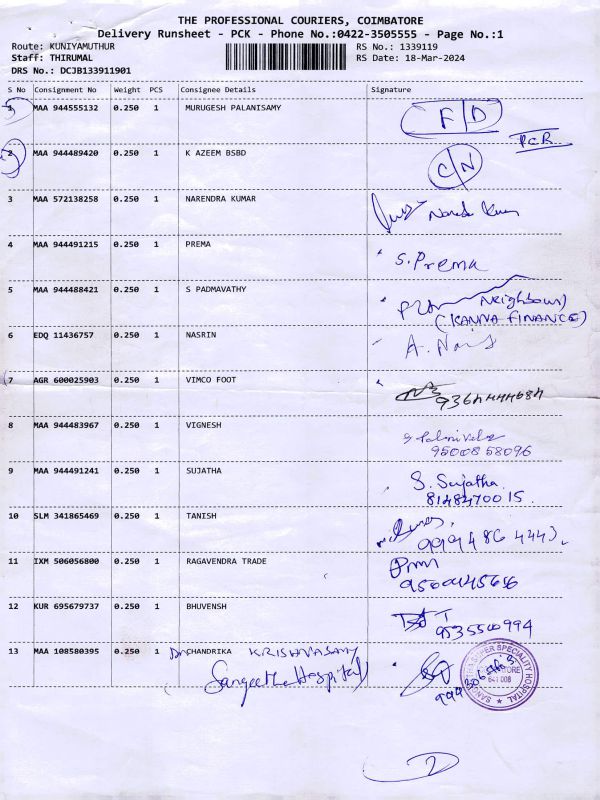 THE PROFESSIONAL COURIERS, COIMBATORE
Delivery Runsheet - PCK - Phone No.:0422-3505555 - Page No.:1
Route: KUNIYAMUTHUR RS No.: 1339119
Staff: THIRUMAL RS Date: 18-Mar-2024
DRS No.: DCJB133911901
S No Consignment No Weight PCS Consignee Details Signature
1 MAA 944555132 0.250 1 MURUGESH PALANISAMY F/D
PCR
2 MAA 944489420 0.250 1 K AZEEM BSBD C/N
3 MAA 572138258 0.250 1 NARENDRA KUMAR
4 MAA 944491215 0.250 1 PREMA S. Prema
5 MAA 944488421 0.250 1 S PADMAVATHY Neighbour
(KANNA FINANCE)
6 EDQ 11436757 0.250 1 NASRIN A.
7 AGR 600025903 0.250 1 VIMCO FOOT
8 MAA 944483967 0.250 1 VIGNESH
9500858096
9 MAA 944491241 0.250 1 SUJATHA S. Sujatha
8148470015.
10 SLM 341865469 0.250 1 TANISH
11 IXM 506056800 0.250 1 RAGAVENDRA TRADE
12 KUR 695679737 0.250 1 BHUVENSH
9535500994
13 MAA 108580395 0.250 1 Dr CHANDRIKA KRISHNASAMY
Sangeetha Hospital
SUPER SPECIALITY HOSPITAL
641 008
2